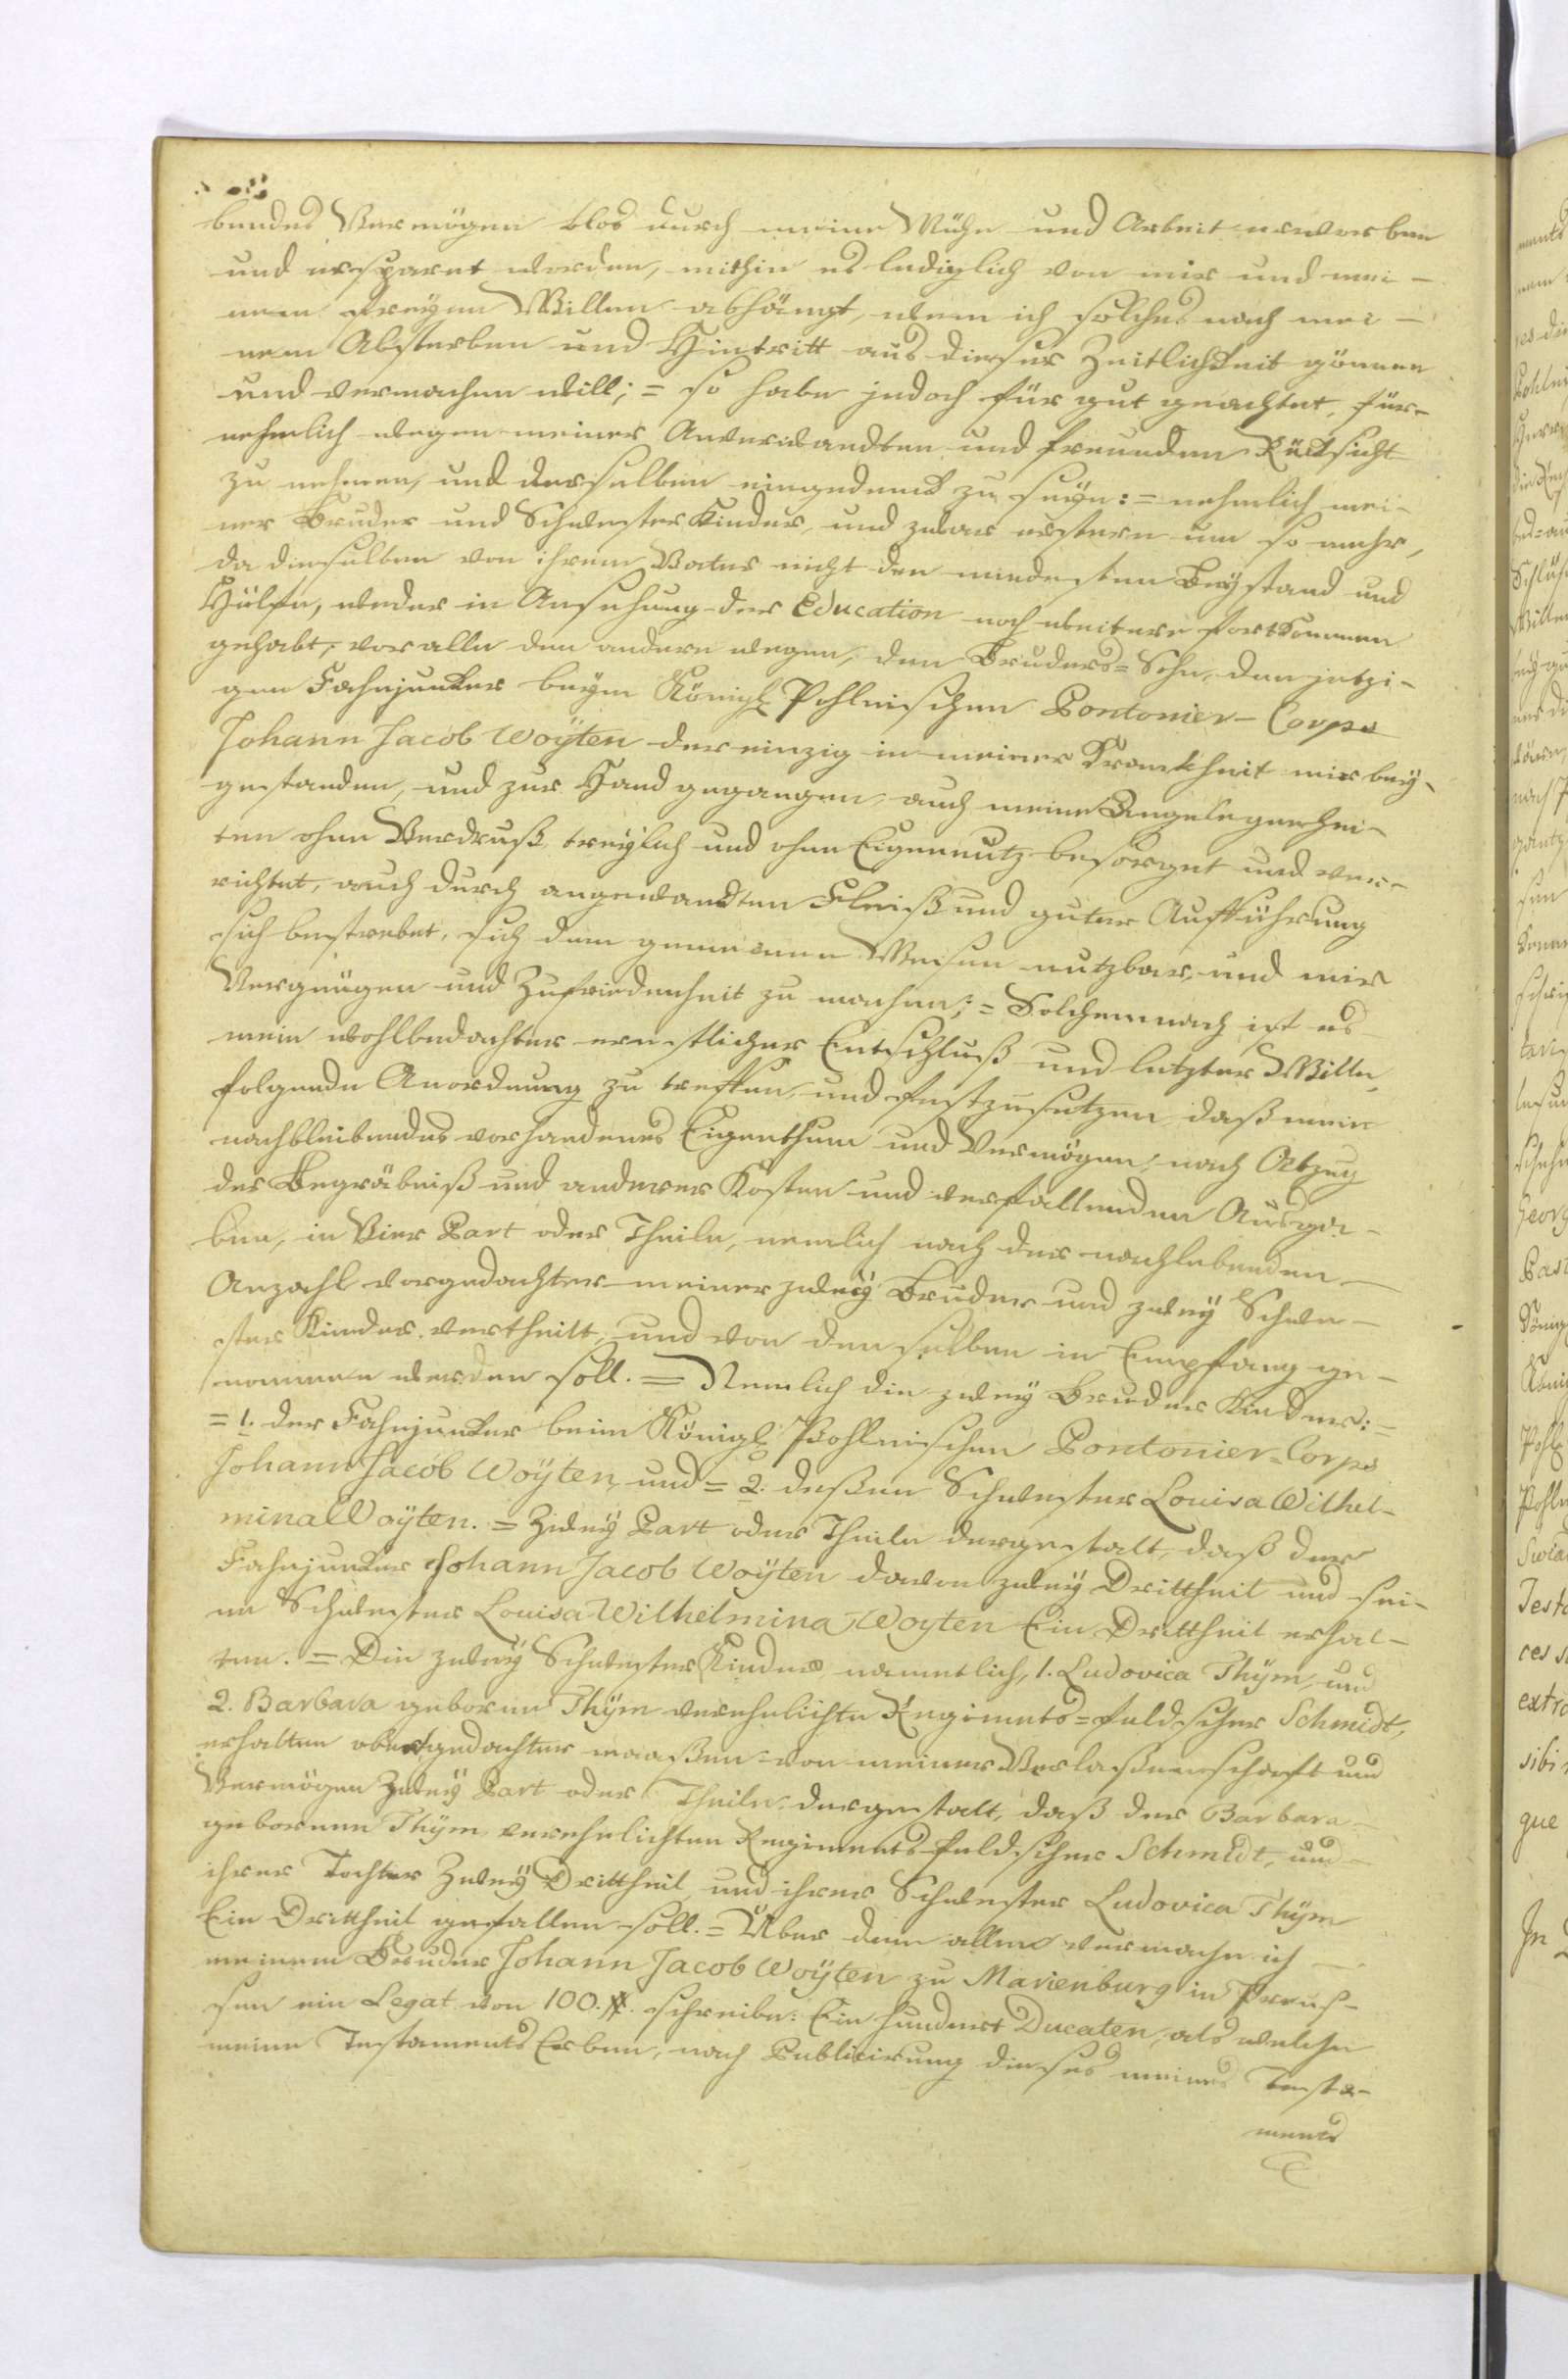 bendes Vermögen blos durch meine Mühe und Arbeit erworben
und ersparet worden, mithin es lediglich von mir und mei-
nem freyen Willen abhängt, wem ich solches nach mei-
nem Absterben und Hintritt aus dieser Zeitlichkeit gönnen
und vermachen will; = so habe jedoch für gut geachtet, für-
nehmlich wegen meiner Anverwandten und freunden Rücksicht
zu nehmen, und derselben eingedenk zu seyn: = nehmlich mei-
ner Bruder und Schwester Kinder, und zwar erstern um so mehr,
da dieselben von ihrem Vater nicht den mindesten Beystand und
Hülfe, weder in Ansehung der Education noch weitere fortkommen
gehabt, vor alle den andern wegen, den Bruders=Sohn, den jetzi-
gen Fahnjunker beym Königl Pohlnischen Pontonier-Corps
Johann Jacob Woÿten der einzig in meiner Krankheit mir bey-
gestanden, und zur Hand gegangen, auch meine Angelegenhei-
ten ohne Verdruß, treylich und ohne Eigennutz besorget und ver-
richtet, auch durch angewandten Fleiß und guter Aufführung
sich bestrebet, sich dem gemeinen Wesen nutzbar, und mir
Vergnügen und Zufriedenheit zu machen; = Solchemnach ist es
mein wohlbedachter ernstlicher Entschluß und letzter Wille,
folgende Anordnung zu treffen, und festzusetzen, daß mein
nachbleibendes vorhandenes Eigenthum und Vermögen, nach Abzug
der Begräbniß und anderer Kosten und verfallenden Ausga-
ben, in Vier Part oder Theile, nemlich nach der nachlebenden
Anzahl vorgedachter meiner zwey Bruder und zwey Schwe-
ster Kinder vertheilt, und von denselben in Empfang ge-
nommen werden soll. = Nemlich die zwey Bruder Kinder: =
= 1. der Fahnjunker beim Königl Pohlnischen Pontonier-Corps
Johann Jacob Woÿten, und = 2. deßen Schwester Louisa Wilhel-
mina Woÿten. = Zwey Part oder Theile dergestalt, daß der
Fahnjunker Johann Jacob Woÿten davon zwey Drittheil und sei-
ne Schwester Louisa Wilhelmina Woyten Ein Drittheil erhal-
ten. = Die zwey Schwester Kinder namentlich, 1. Ludovica Thÿm, und
2. Barbara geborne Thÿm verehelichte Regiments=feldscher Schmidt,
erhalten obengedachter maaßen von meiner Verlaßenschaft und
Vermögen Zwey Part oder Theile, dergestalt, daß der Barbara
gebornen Thÿm verehelichten Regiments-feldscher Schmidt, und
ihrer Tochter Zwey Drittheil und ihrer Schwester Ludovica Thÿm
Ein Drittheil gefallen soll. = Über dem allem vermache ich
meinem Bruder Johann Jacob Woÿten zu Marienburg in Preuß-
sen ein Legat von 100. #. schreibe: Ein hundert Ducaten, als welche
meine Testaments Erben, nach Publicirung dieses meines Testa-
ments